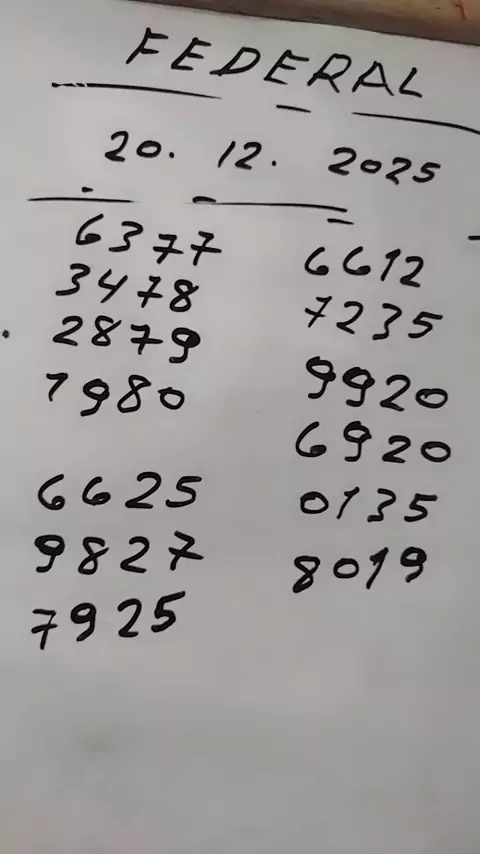 FEDERAL
20. 12. 2025
6377
3478
2879
1980
6625
9827
7925
6612
7235
9920
6920
0135
8019